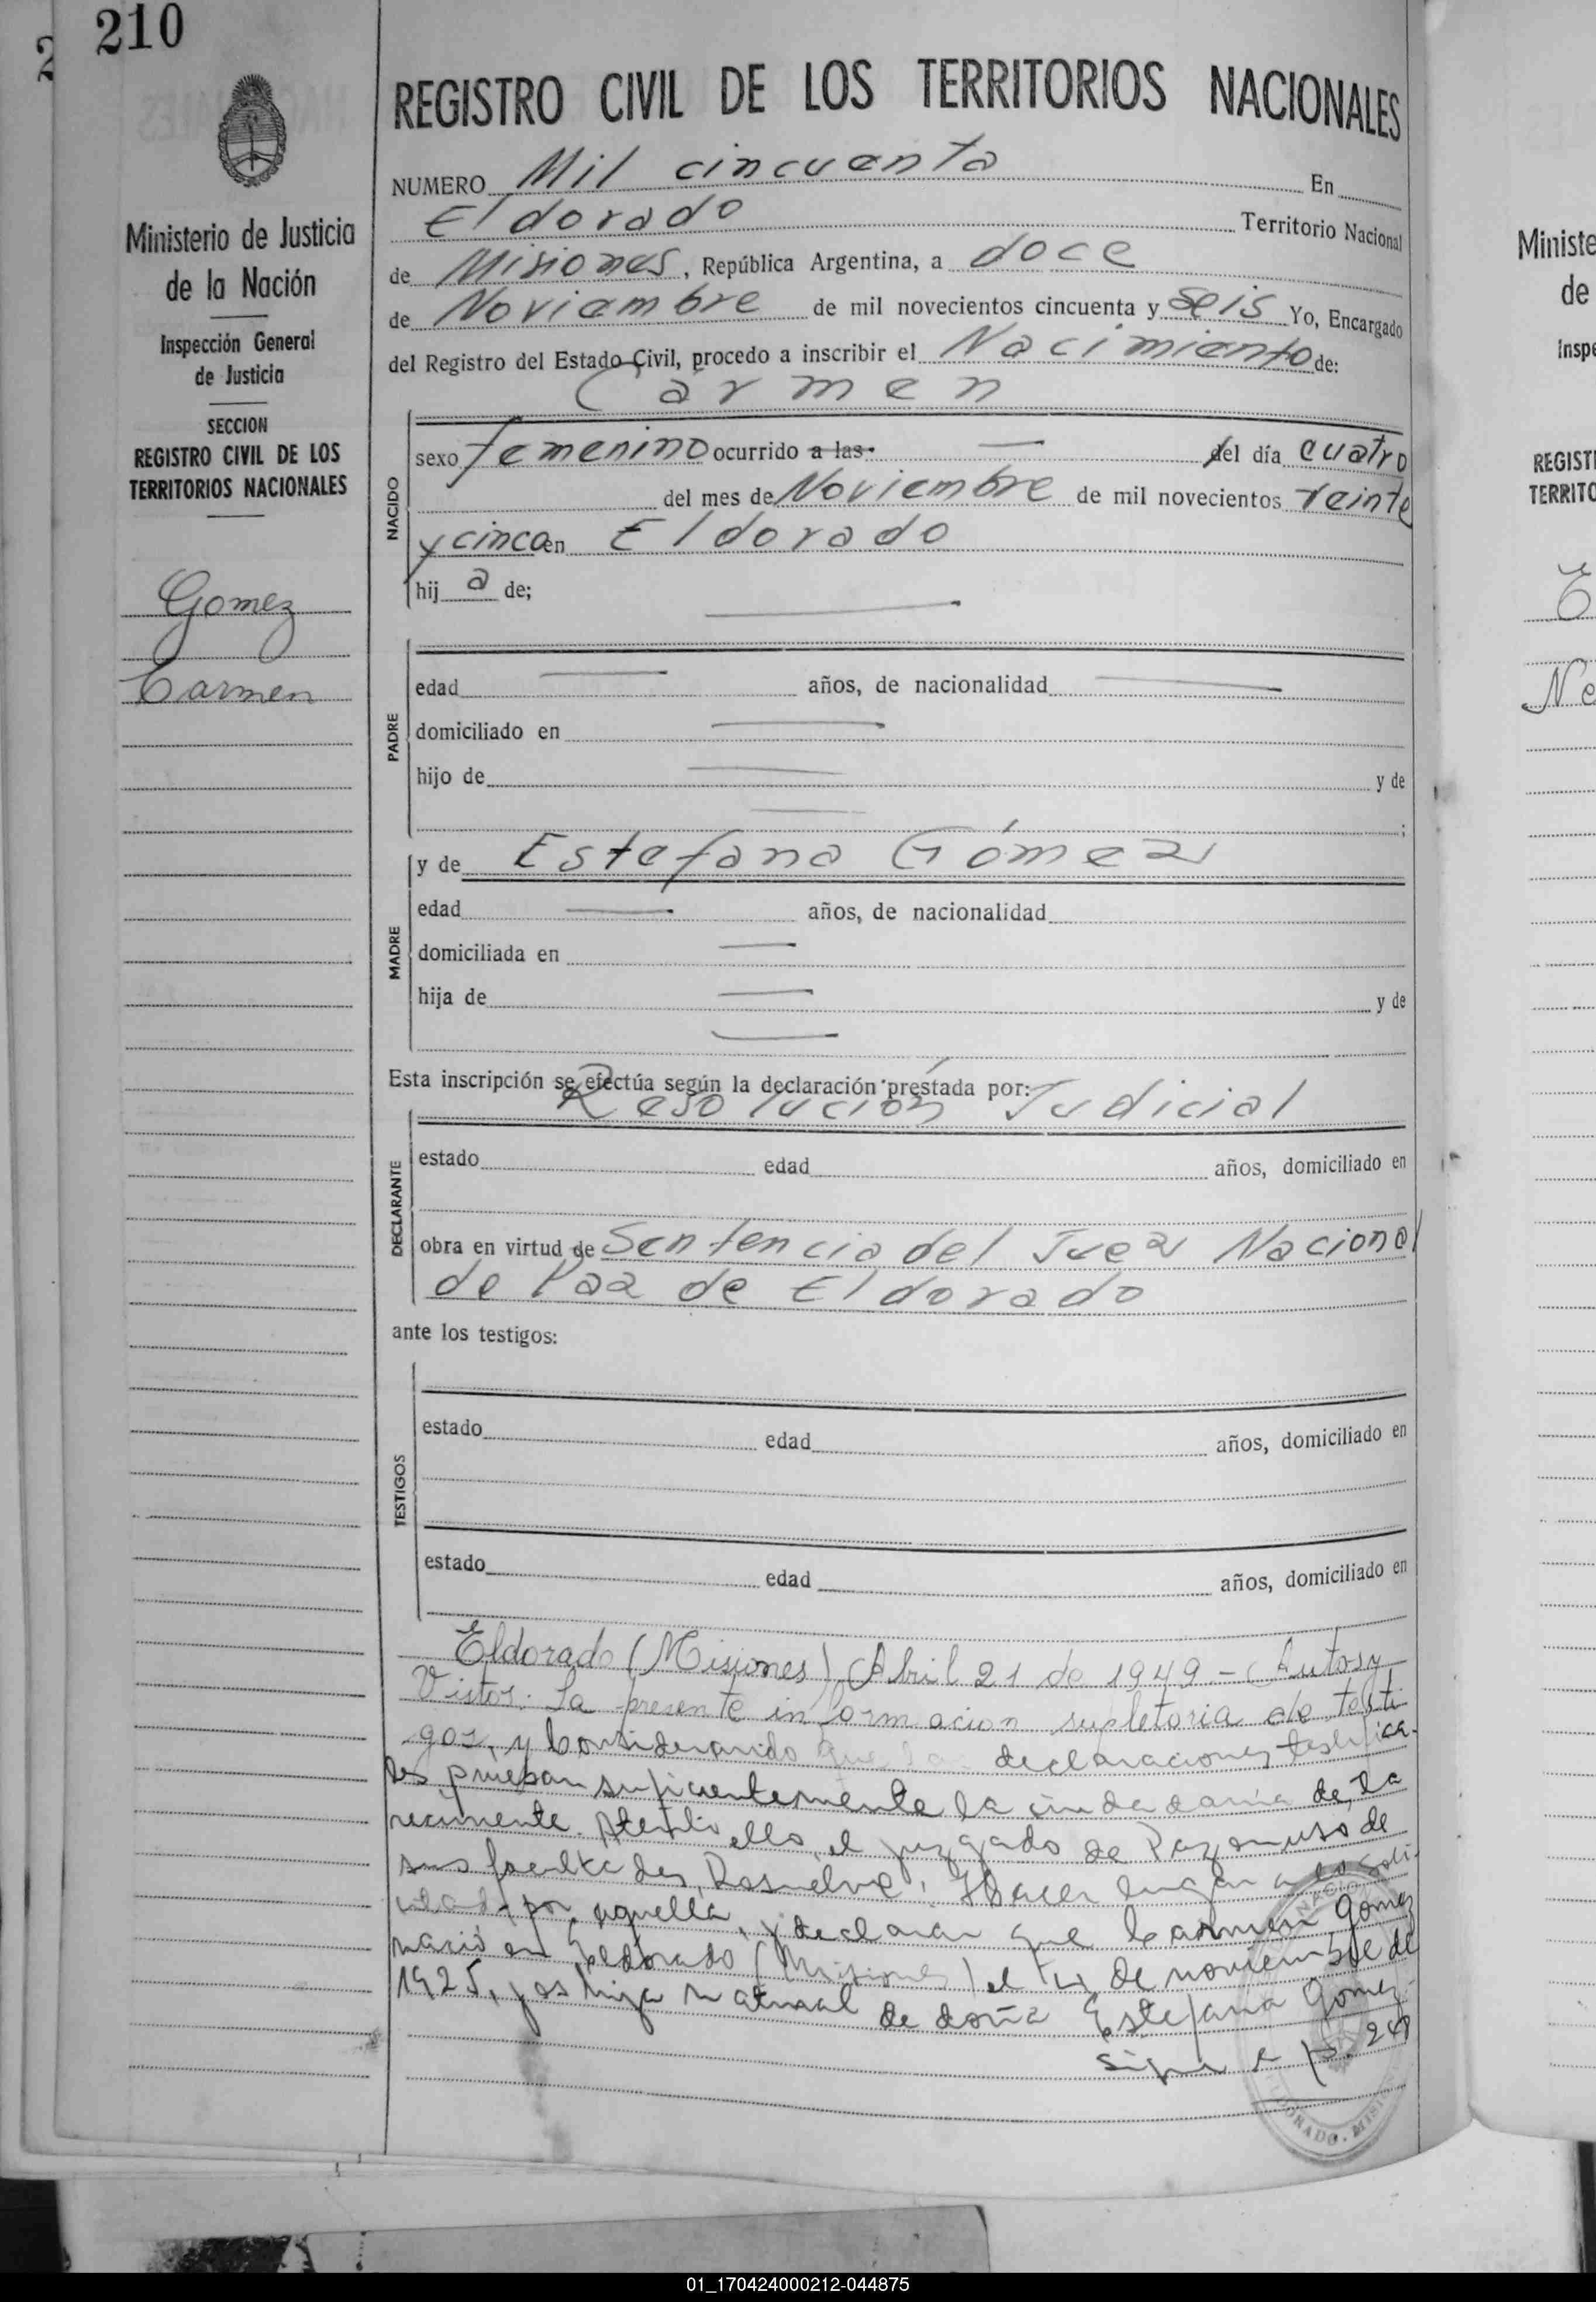 210
REGISTRO CIVIL DE LOS TERRITORIOS NACIONALES
Ministerio de Justicia
de la Nación
Inspección General
de Justicia
SECCION
REGISTRO CIVIL DE LOS
TERRITORIOS NACIONALES
Gomez
Carmen
NUMERO Mil cincuenta En
Eldorado Territorio Nacional
de Misiones, República Argentina, a doce
de Noviembre de mil novecientos cincuenta y seis Yo, Encargado
del Registro del Estado Civil, procedo a inscribir el Nacimiento de:
Carmen
NACIDO
sexo femenino ocurrido a las del día cuatro
del mes de Noviembre de mil novecientos veinte
y cinco en Eldorado
hij a de;
PADRE
edad años, de nacionalidad
domiciliado en
hijo de y de
;
MADRE
y de Estefana Gómez
edad años, de nacionalidad
domiciliada en
hija de y de
Esta inscripción se efectúa según la declaración prestada por:
Resolución Judicial
DECLARANTE
estado edad años, domiciliado en
obra en virtud de Sentencia del Juez Nacional
de Paz de Eldorado
ante los testigos:
TESTIGOS
estado edad años, domiciliado en
estado edad años, domiciliado en
Eldorado (Misiones) Abril 21 de 1949 - Autos y
Vistos. La presente informacion supletoria de testi
gos, y Considerando que las declaraciones testifica
les prueban suficientemente la ciudadania de la
recurrente. Atento ello, el juzgado de Paz en uso de
sus facultades, Resuelve: Hacer lugar a lo soli
citado por aquella, y declarar que Carmen Gomez
nació en Eldorado (Misiones) el 4 de noviembre de
1925, y es hija natural de doña Estefana Gomez.
Sigue a fs. 
Ministe
de
Inspe
REGISTI
TERRITO
01_170424000212-044875